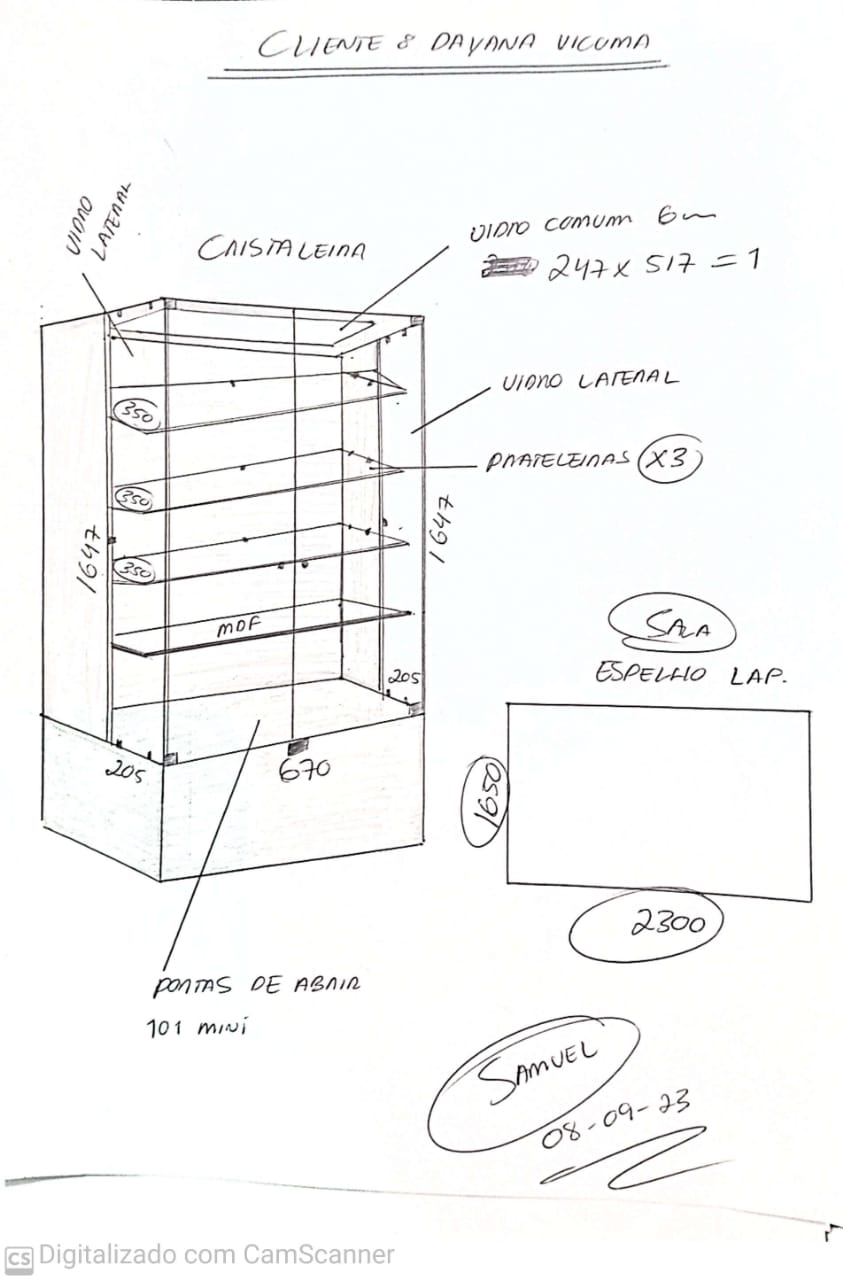 CLIENTE: DAYANA VICOMA
VIDRO
LATERAL
CRISTALEIRA
VIDRO COMUM 6m
247 X 517 = 1
VIDRO LATERAL
350
PRATELEIRAS X3
350
1647
1647
350
MDF
SALA
ESPELHO LAP.
205
1650
205
670
2300
PORTAS DE ABRIR
101 MINI
SAMUEL
08-09-23
CS Digitalizado com CamScanner